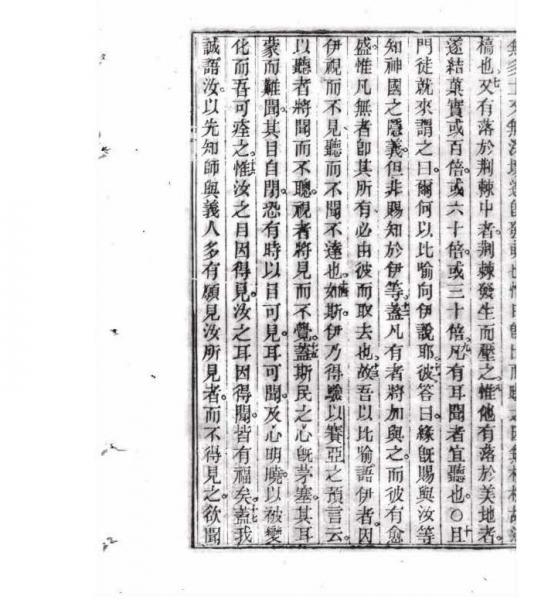 槁也又有落於荆棘中者。荆棘發生而壓之。惟他有落於美地者。
遂結菓實或百倍。或六十倍。或三十倍。凡有耳聞者宜聽也。〇且
門徒就來謂之曰。爾何以比喻向伊說耶。彼答曰。緣旣賜與汝等
知神國之隱義。但非賜知於伊等。蓋凡有者將加與之。而彼有愈
盛。惟凡無者卽其所有必由彼而取去也。故吾以比喻語伊者。因
伊視而不見。聽而不聞。不達也。如斯伊乃得驗以賽亞之預言云。
以聽者將聞而不聰。視者將見而不覺。蓋斯民之心旣茅塞。其耳
蒙而難聞。其目自閉。恐有時以目可見。耳可聞。及心明曉。以被變
化而吾可痊之。惟汝之目因得見。汝之耳因得聞。皆有福矣。蓋我
誠語汝。以先知師與義人多有願見汝所見者。而不得見之。欲聞